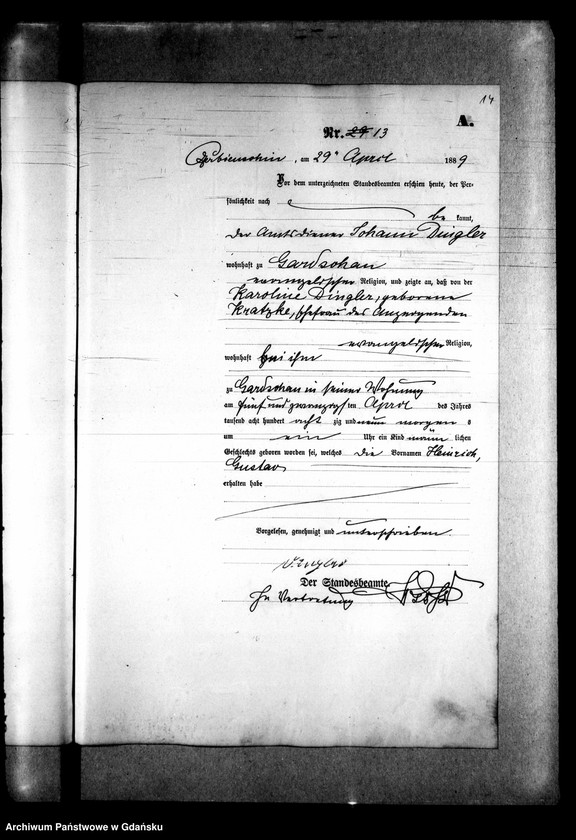 14
A.
Nr. 29 13
, am 29n April 1889
Vor dem unterzeichneten Standesbeamten erschien heute, der Per-
sönlichkeit nach
be kannt,
der Amtsdiener Johann Dingler
wohnhaft zu Gardschau
evangelischer Religion, und zeigte an, daß von der
Karoline Dingler, geborene
Kratzke, Ehefrau des Anzeigenden
evangelischer Religion,
wohnhaft bei ihm
zu Gardschau in seiner Wohnung
am fünf und zwanzigsten April des Jahres
tausend acht hundert acht zig und neun morgen s
um ein Uhr ein Kind männ lichen
Geschlechts geboren worden sei, welches die Vornamen Heinrich,
Gustav
erhalten habe
Vorgelesen, genehmigt und unterschrieben.
Dingler
Der Standesbeamte.
In Vertretung
Archiwum Państwowe w Gdańsku